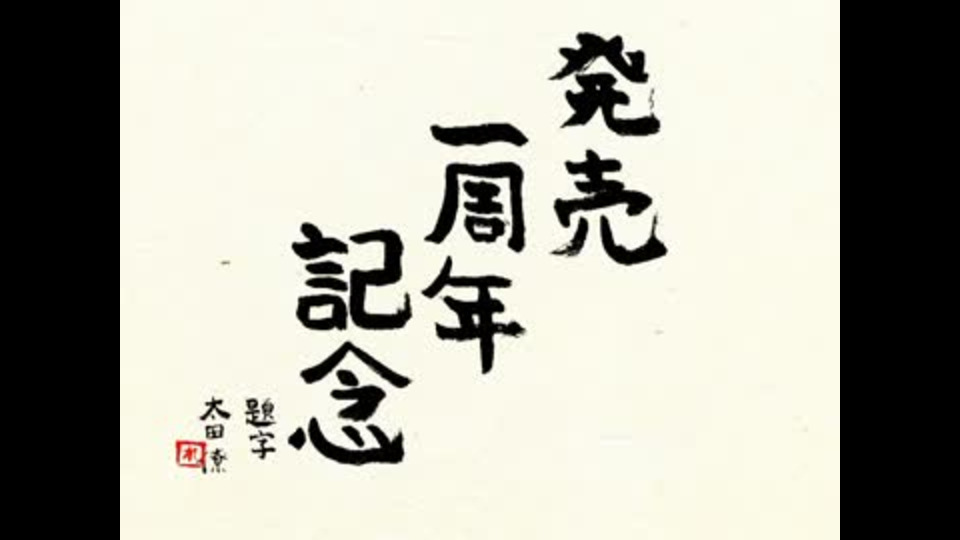 発売
一周年
記念
題字
太田 療